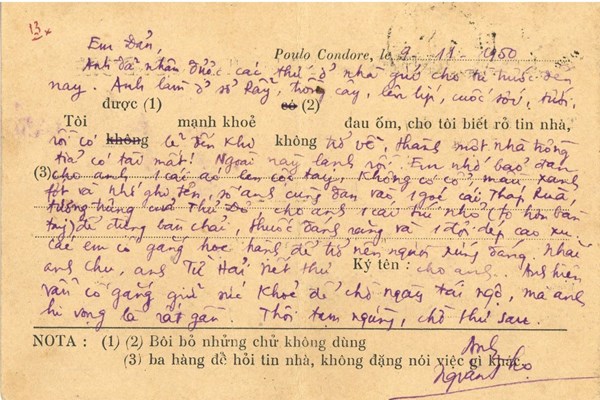 13x
Em Đản,
Poulo Condore, le 9 - 11 - 1950
Anh đã nhận được các thư ở nhà gửi cho từ trước đến
nay. Anh làm ở sở Rẫy, trồng cây, lên líp, cuốc xới, tưới.
được (1) có (2)
Tôi mạnh khoẻ đau ốm, cho tôi biết rõ tin nhà,
không không
rồi có lẽ đến khi trở về, thành một nhà trồng
tỉa có tài mất! Ngoài này lạnh rồi. Em nhớ bảo đan
(3) cho anh 1 cái áo len cộc tay, không có cổ, màu xanh
và nhớ ghi tên, số anh cùng đan vào 1 góc cái Tháp Rùa,
tượng trưng của Thủ Đô cho anh 1 cái túi nhỏ (to hơn bàn
tay) để đựng bàn chải, thuốc đánh răng và 1 đôi dép cao xu.
Các em cố gắng học hành để trở nên người xứng đáng. Nhắc
anh Chu, anh Tử Hải viết thư cho anh. Anh hiện
Ký tên :
vẫn cố gắng giữ sức khoẻ để chờ ngày tái ngộ, mà anh
hi vọng là rất gần. Thôi tạm ngừng, chờ thư sau.
NOTA : (1) (2) Bôi bỏ những chữ không dùng
(3) ba hàng để hỏi tin nhà, không đặng nói việc gì khác.
Anh